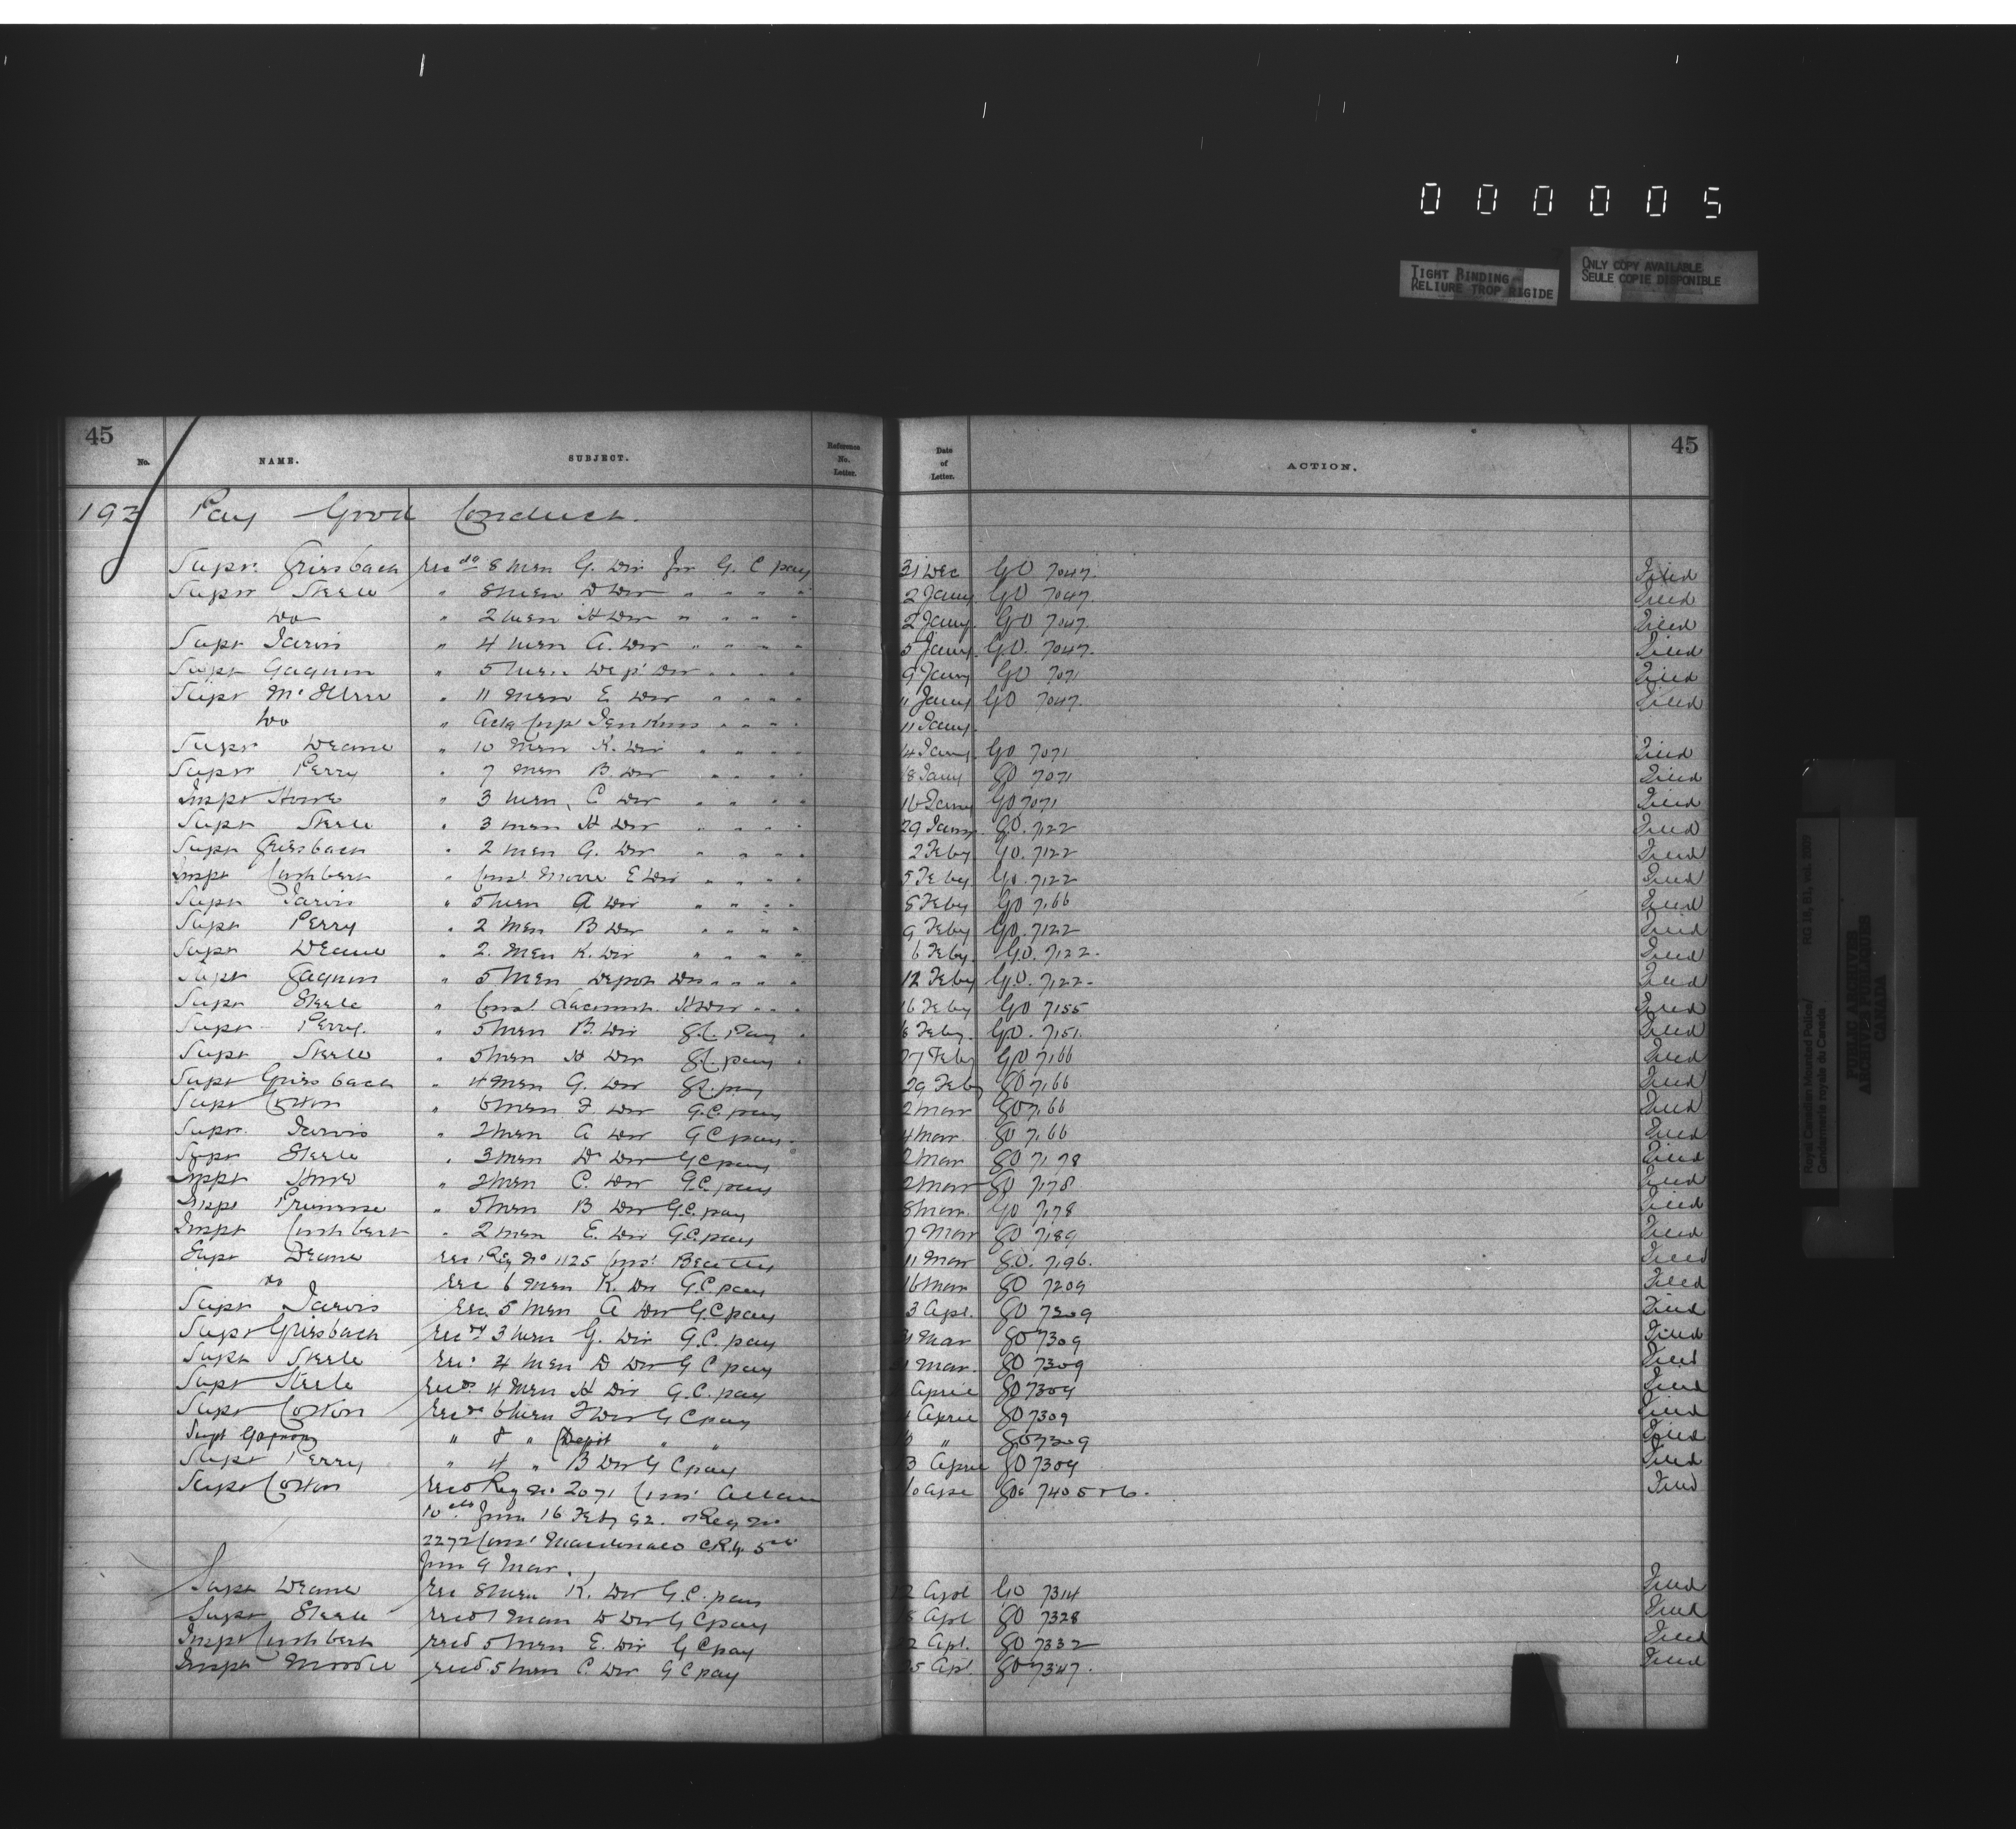 000005
TIGHT BINDING
RELIURE TROP RIGIDE
ONLY COPY AVAILABLE
SEULE COPIE DISPONIBLE
45
45
No. NAME. SUBJECT. Reference No. Letter. Date of Letter. ACTION.
193 Pay Good Conduct.
Supt. Griesbach Recds 8 Men G. Div for G. C pay 31 Dec GO 7047. Filed
Supt Steele " 8 Men D Div " " " " 2 Jany GO 7047. Filed
Do " 2 Men H Div " " " " 2 Jany GO 7047. Filed
Supt Jarvis " 4 Men A. Div " " " " 5 Jany. GO. 7047. Filed
Supt Gagnon " 5 Men Dept Div " " " " 9 Jany GO 7071 Filed
Supt McIllree " 11 Men E. Div " " " " 11 Jany GO 7047. Filed
Do " Corp Jenkins " " " " 11 Jany.
Supt Deane " 10 Men K. Div " " " " 14 Jany. GO 7071 Filed
Supt Perry " 7 Men B. Div " " " " 18 Jany GO 7071 Filed
Inspt Howe " 3 Men, C Div " " " " 16 Jany GO 7071 Filed
Supt Steele " 3 men H Div " " " " 29 Jany. GO. 7122 Filed
Supt Griesbach " 2 men G. Div " " " " 2 Feby GO. 7122 Filed
Inspt Cuthbert " Const Moore E Div " " " " 5 Feby GO. 7122 Filed
Supt Jarvis " 5 Men A Div " " " " 8 Feby GO 7166 Filed
Supt Perry " 2 Men B Div " " " " 9 Feby GO. 7122 Filed
Supt Deane " 2. Men K. Div " " " " 6 Feby. GO. 7122. Filed
Supt Gagnon " 5 Men Depot Div " " " " 12 Feby GO. 7122. Filed
Supt Steele " Const H Div " " " 16 Feby GO 7155 Filed
Supt Perry. " 5 Men B. Div G.C. Pay 6 Feby. GO. 7151. Filed
Supt Steele " 5 Men H Div G.C. pay 27 Feby GO 7166 Filed
Supt Griesbach " 4 Men G. Div G.C. pay 29 Feby GO 7166 Filed
Supt Cotton " 6 Men F. Div G.C. pay 2 Mar GO 7166 Filed
Supt. Jarvis " 2 Men A Div G C pay. 4 Mar. GO 7166 Filed
Supt Steele " 3 Men D Div G C pay 2 Mar GO 7178 Filed
Inspt Howe " 2 Men C. Div G.C. pay 2 Mar GO 7178 Filed
Inspt Primrose " 5 Men B Div G.C. pay 8 Mar. GO 7178 Filed
Inspt Cuthbert " 2 Men E. Div G.C. pay 7 Mar GO 7189 Filed
Supt Deane Rec Reg No 1125 Const Beatty 11 Mar GO. 7196. Filed
Do Rec 6 Men K. Div G.C. pay 16 Mar GO 7209 Filed
Supt Jarvis Rec 5 Men A Div G.C pay 3 Apl. GO 7309 Filed
Supt Griesbach Recds 3 Men G. Div G.C. pay Mar GO 7309 Filed
Supt Steele Rec. 4 Men D Div G C pay Mar. GO 7309 Filed
Supt Steele Recds 4 Men H Div G.C. pay April GO 7309 Filed
Supt Cotton Recds 6 Men F Div G C pay April GO 7309 Filed
Supt Gagnon " 8 " Depot " " " GO 7309 Filed
Supt Perry " 4 " B Div G C pay 3 April GO 7309 Filed
Supt Cotton Recd Reg No 2071 Const Allan Apl GOs 7405 & 6. Filed
10cts from 16 Feby 92. & Reg No
2272 Const Macdonald 5cts
from 9 Mar.
Supt Deane Rec 8 Men K. Div G.C. pay 12 Apl GO 7314 Filed
Supt Steele Recd 1 Man D Div G C pay Apl GO 7328 Filed
Inspt Cuthbert Recd 5 Men E. Div G C pay Apl. GO 7332 Filed
Inspt Moodie Recd. 5 Men C. Div G C pay Apl. GO 7347. Filed
Royal Canadian Mounted Police/
Gendarmerie royale du Canada
PUBLIC ARCHIVES
ARCHIVES PUBLIQUES
CANADA